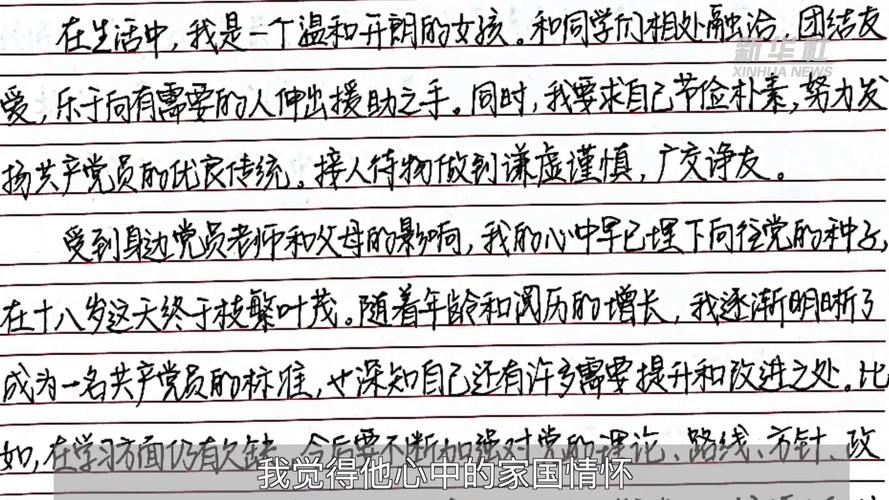 在生活中，我是一个温和开朗的女孩。和同学们相处融洽，团结友
新华社
XINHUA NEWS
爱，乐于向有需要的人伸出援助之手。同时，我要求自己节俭朴素，努力发
扬共产党员的优良传统。接人待物做到谦虚谨慎，广交诤友。
受到身边党员老师和父母的影响，我的心中早已埋下向往党的种子，
在十八岁这天终于枝繁叶茂。随着年龄和阅历的增长，我逐渐明晰了
成为一名共产党员的标准，也深知自己还有许多需要提升和改进之处。比
如，在学习方面仍有欠缺，今后要不断加强对党的理论、路线、方针、政
我觉得他心中的家国情怀